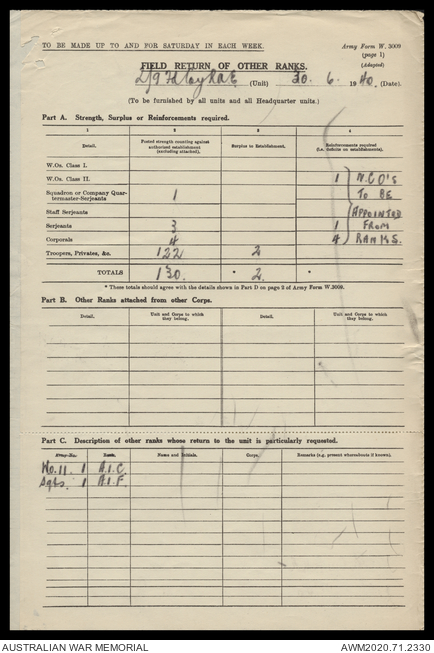 TO BE MADE UP TO AND FOR SATURDAY IN EACH WEEK.
Army Form W. 3009
(page 1)
(Adapted)
FIELD RETURN OF OTHER RANKS.
2/9 Fd Coy RAE (Unit) 30. 6. 1940. (Date).
(To be furnished by all units and all Headquarter units.)
Part A. Strength, Surplus or Reinforcements required.
1 2 3 4
Detail. Posted strength counting against authorized establishment (excluding attached). Surplus to Establishment. Reinforcements required (i.e. deficits on establishments).
W.Os. Class I.
W.Os. Class II. 1 N.C.O's
Squadron or Company Quar-
termaster-Serjeants 1 TO BE
Staff Serjeants APPOINTED
Serjeants 3 1 FROM
Corporals 4 4 RANKS.
Troopers, Privates, &c. 122 2
TOTALS 130. * 2. *
* These totals should agree with the details shown in Part D on page 2 of Army Form W.3009.
Part B. Other Ranks attached from other Corps.
Detail. Unit and Corps to which they belong. Detail. Unit and Corps to which they belong.
Part C. Description of other ranks whose return to the unit is particularly requested.
Rank. Name and Initials. Corps. Remarks (e.g. present whereabouts if known).
Wo.11. 1 A.I.C.
Sgts. 1 A.I.F.
AUSTRALIAN WAR MEMORIAL
AWM2020.71.2330